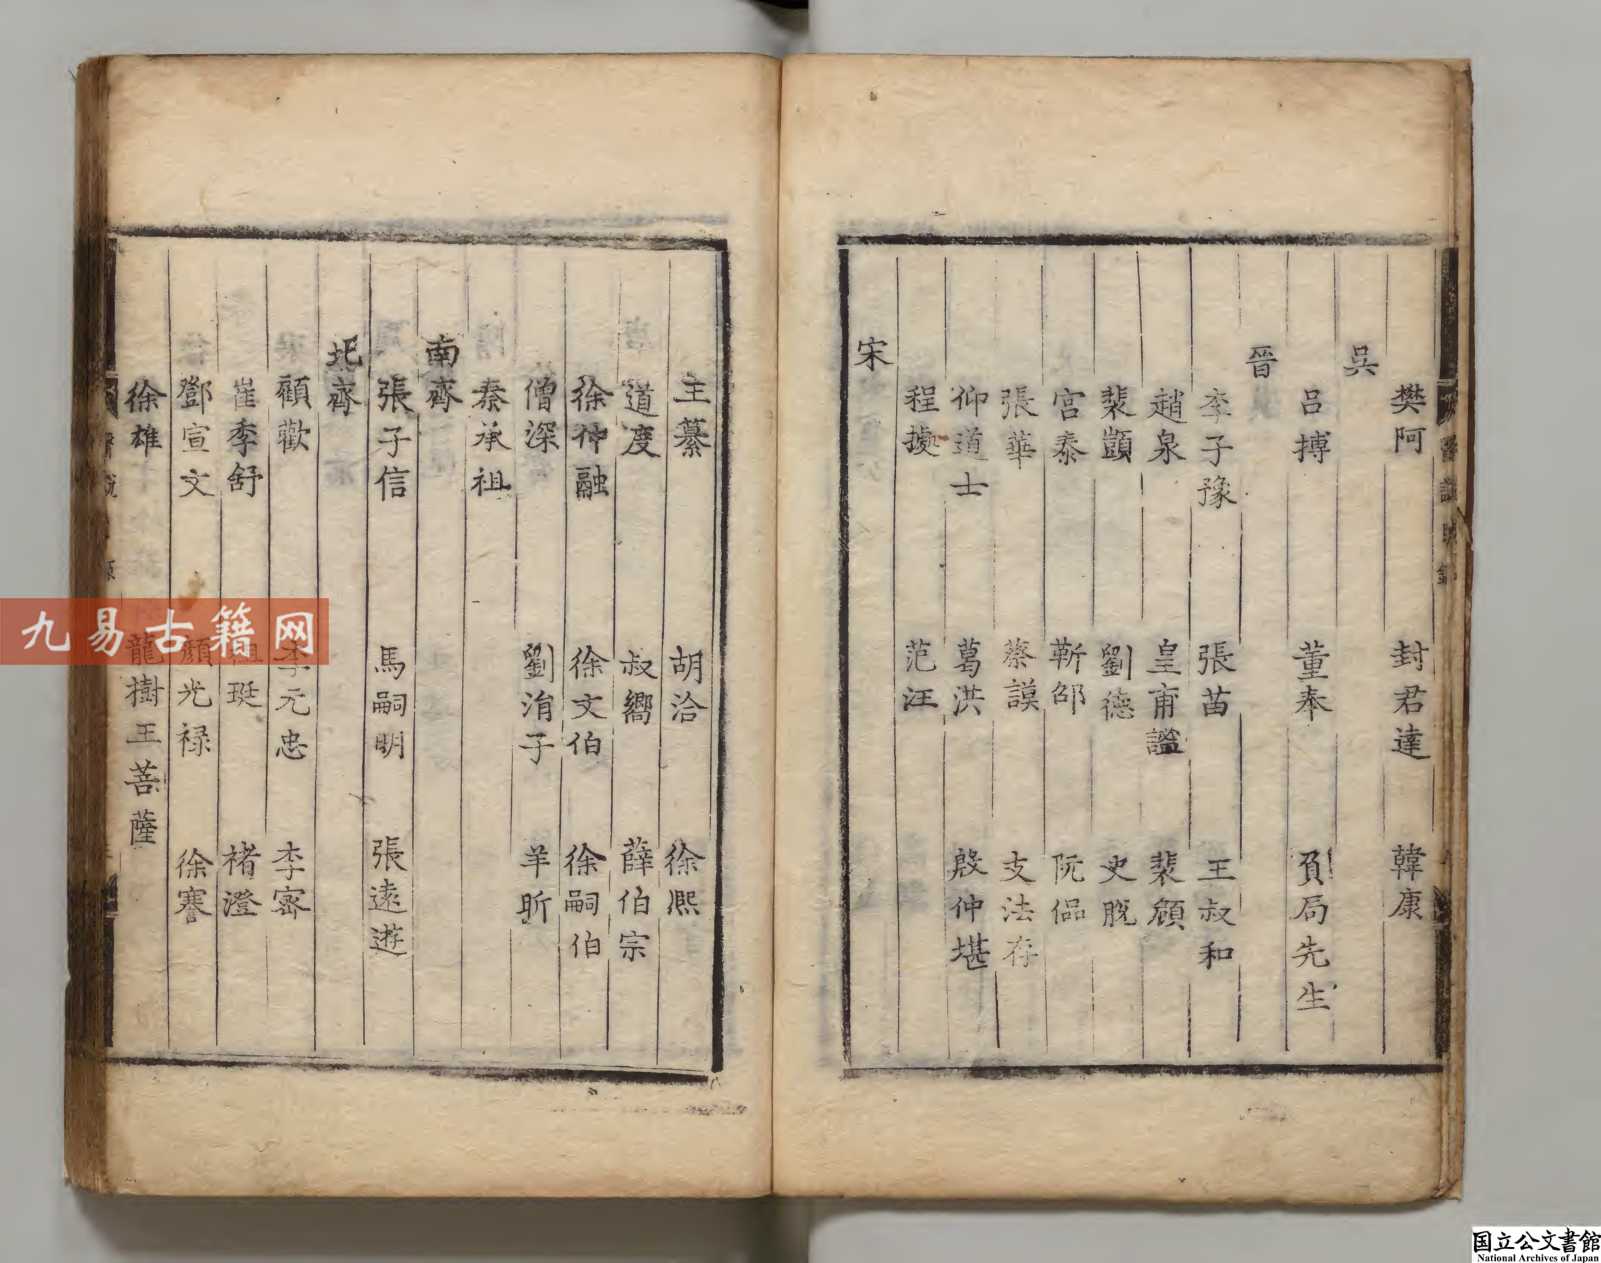 樊阿　封君達　韓康
吳
呂搏　董奉　負局先生
晉
李子豫　張苗　王叔和
趙泉　皇甫謐　裴頠
裴顗　劉德　史脫
宮泰　靳邵　阮侃
張華　蔡謨　支法存
仰道士　葛洪　殷仲堪
程據　范汪
宋
王纂　胡洽　徐熈
道度　叔嚮　薛伯宗
徐仲融　徐文伯　徐嗣伯
僧深　劉涓子　羊昕
秦承祖
南齊
張子信　馬嗣明　張遠遊
北齊
顧歡　李元忠　李密
崔季舒　祖珽　褚澄
鄧宣文　顏光禄　徐謇
徐雄　龍樹王菩薩
九易古籍网
国立公文書館
National Archives of Japan